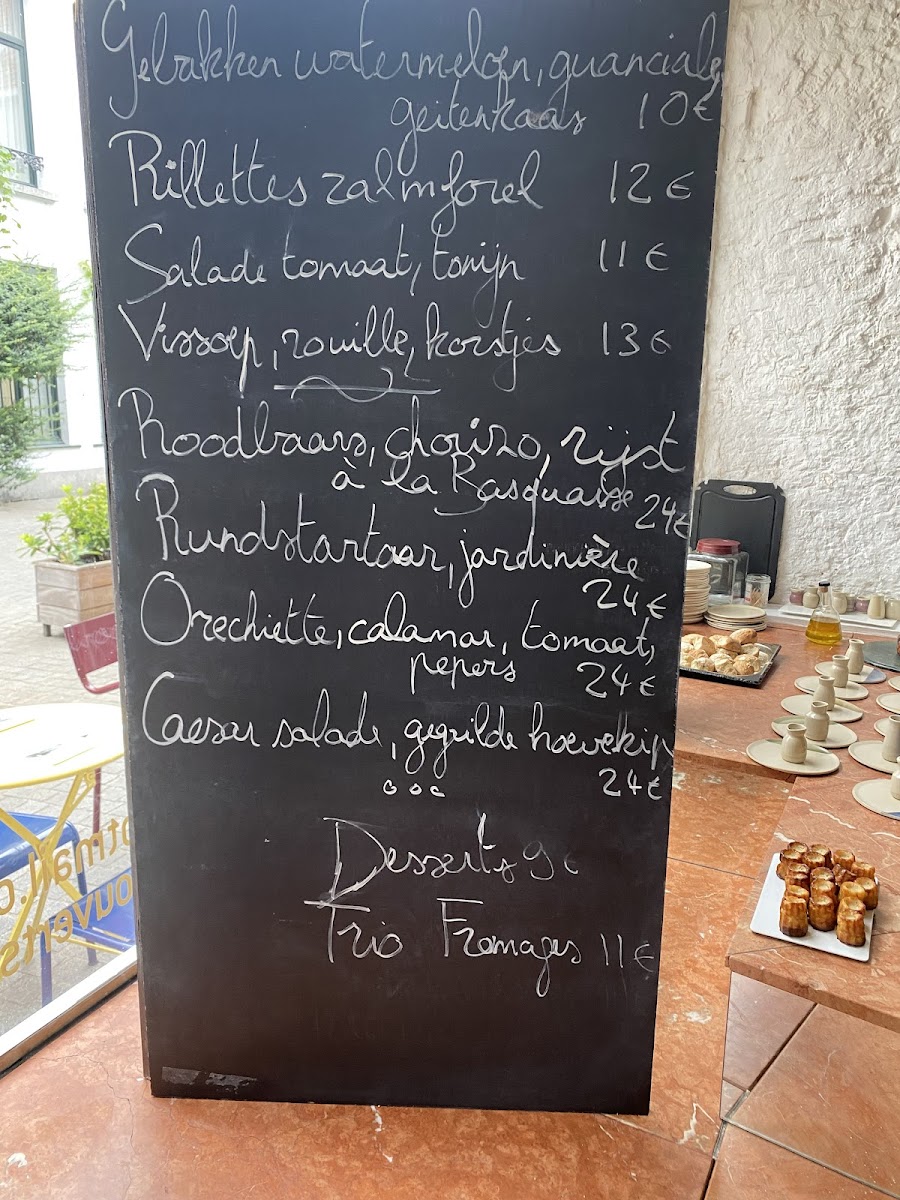 Gebakken watermeloen, guanciale,
geitenkaas 10€
Rillettes zalmforel 12€
Salade tomaat, tonijn 11€
Vissoep, rouille, korstjes 13€
Roodbaars, chorizo, rijst
à la Basquaise 24€
Rundstartaar, jardinière
24€
Orechiette, calamar, tomaat,
pepers 24€
Caesar salade, gegrilde hoevekip
24€
Desserts 9€
Trio Fromages 11€
otmail.c
ouverts